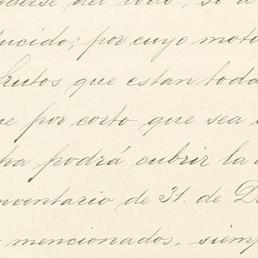 derse del todo, si a
lucido; por cuyo moti
frutos que estan toda
ue por corto que sea
ha podrá cubrir la
nventario de 31. de D
mencionados, siemp